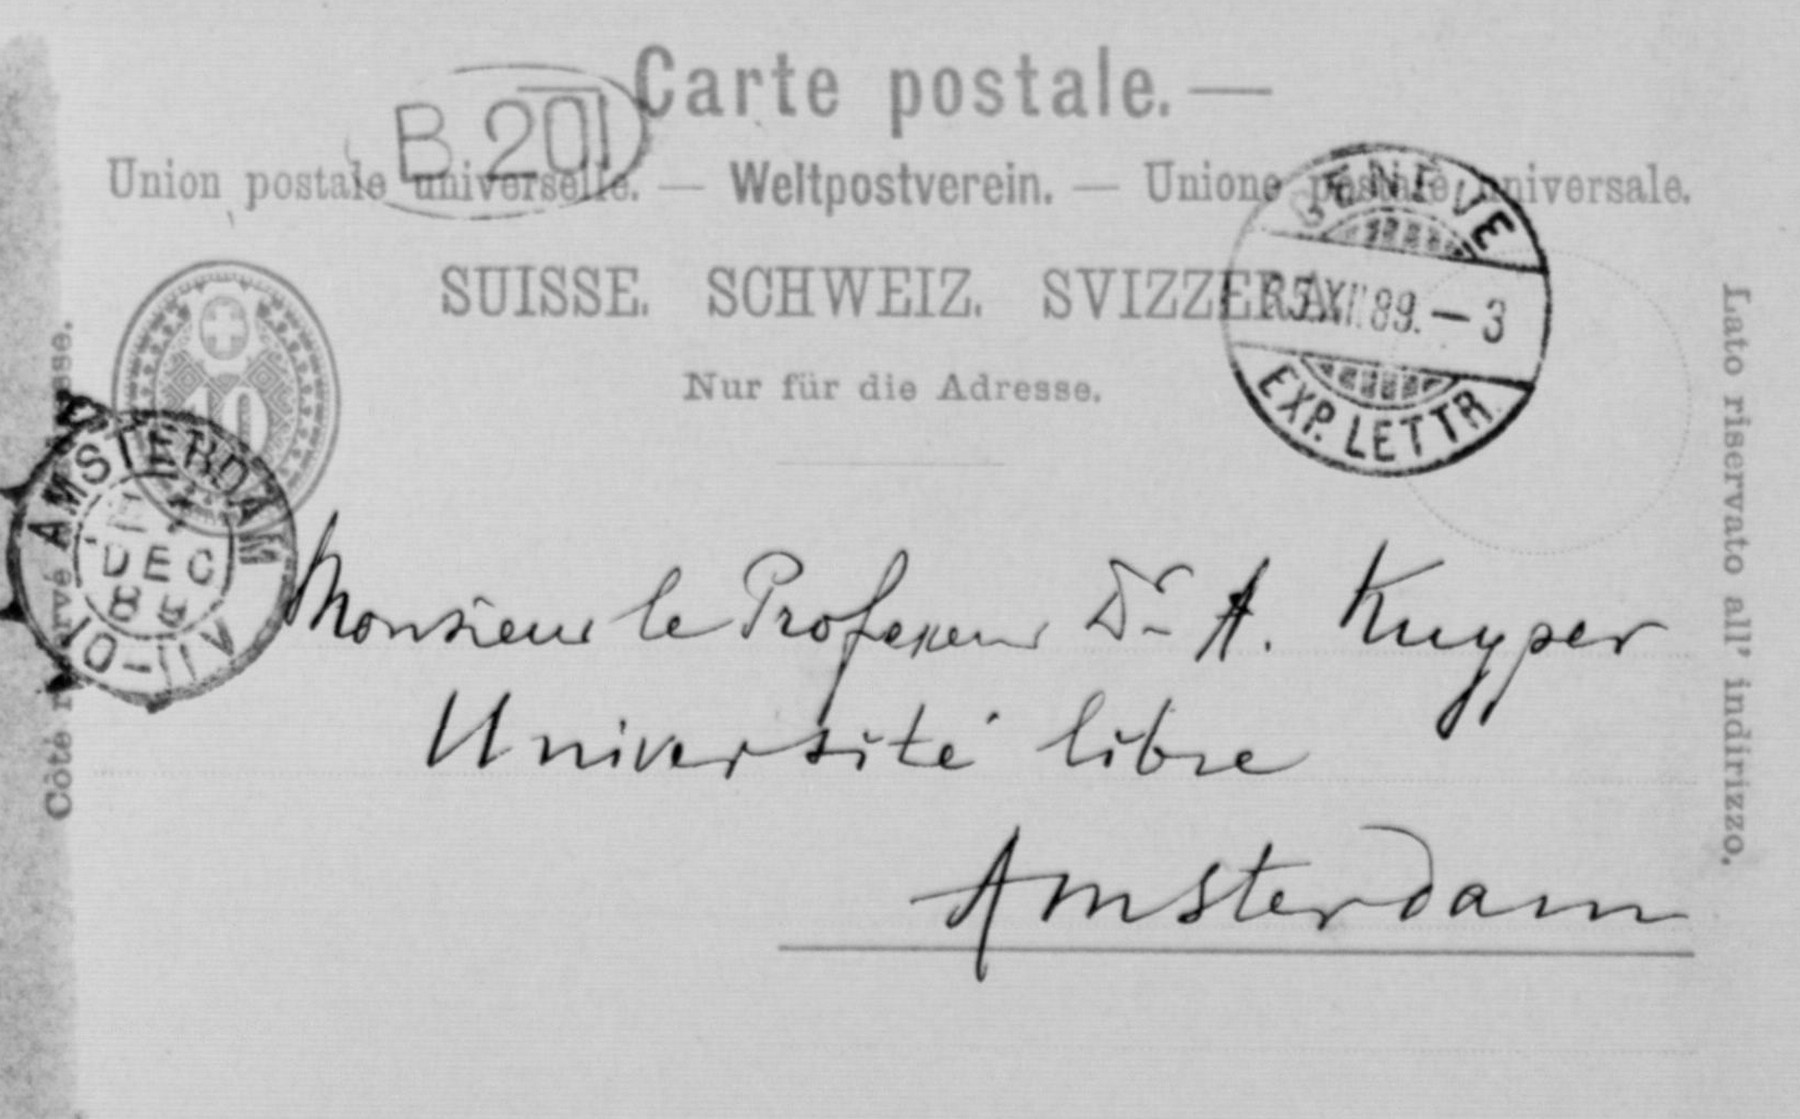 Carte postale. —
B.201
Union postale universelle. — Weltpostverein. — Unione postale universale.
SUISSE. SCHWEIZ. SVIZZERA.
Nur für die Adresse.
10
GENÈVE
5.XII.89. — 3
EXP. LETTR.
AMSTERDAM
DEC
Côté réservé
Lato riservato all' indirizzo.
Monsieur le Professeur Dr A. Kuyper
Université libre
Amsterdam